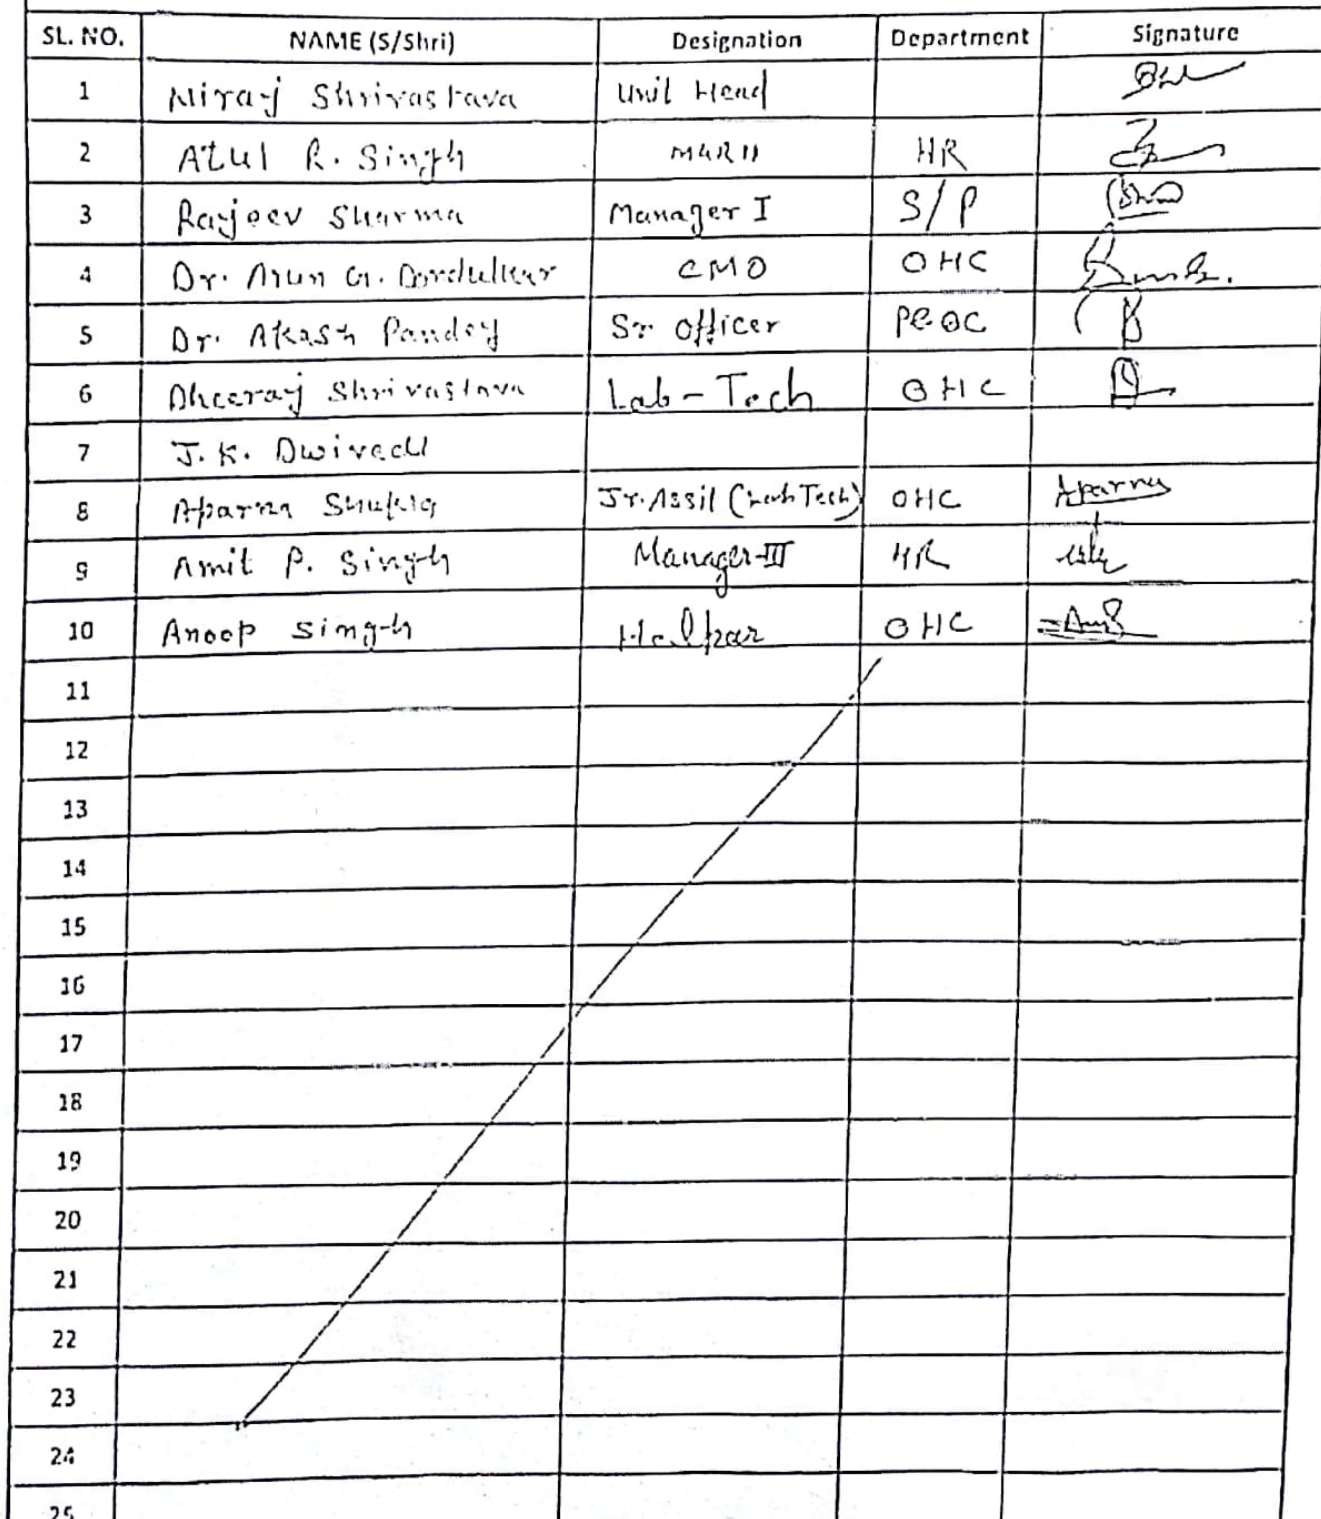 SL. NO. NAME (S/Shri) Designation Department Signature
1 Niraj Shrivastava Unit Head
2 Atul R. Singh MGR II HR
3 Rajeev Sharma Manager I S/P
4 Dr. Arun G. CMO OHC
5 Dr. Akash Pandey Sr officer
6 Dheeraj Shrivastava Lab-Tech OHC
7 J.K. Dwivedi
8 Aparna Shukla Jr. Assit (Lab Tech) OHC Aparna
9 Amit P. Singh Manager-III HR
10 Anoop Singh Helpar OHC
11
12
13
14
15
16
17
18
19
20
21
22
23
24
25